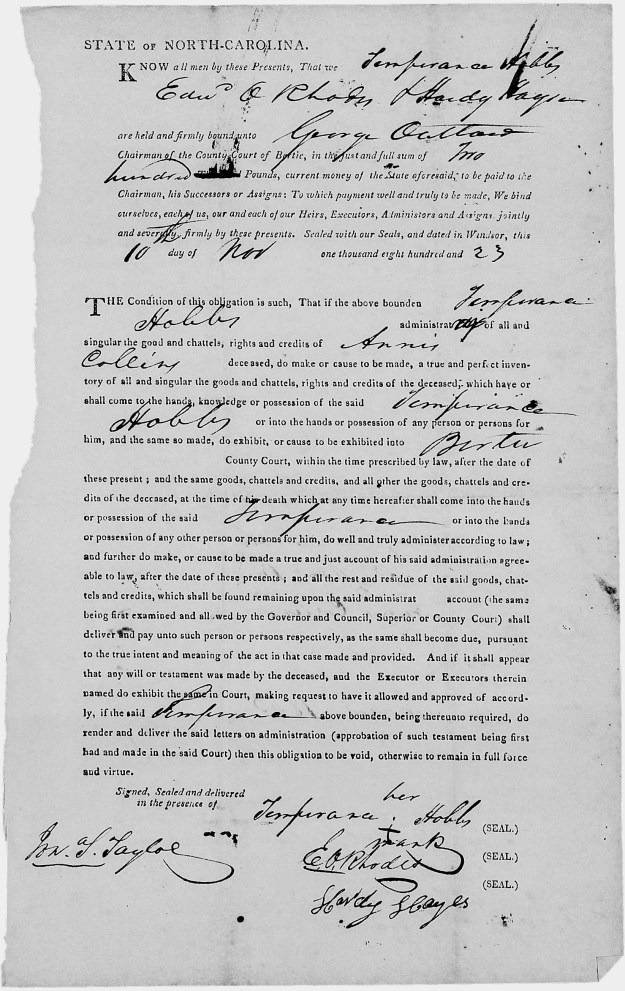 STATE OF NORTH-CAROLINA.
KNOW all men by these Presents, That we Temperance Hobbs
Edwd O Rhodes & Hardy Hayse
are held and firmly bound unto George Outland
Chairman of the County Court of Bertie, in the just and full sum of Two
hundred Pounds, current money of the State aforesaid, to be paid to the
Chairman, his Successors or Assigns: To which payment well and truly to be made, We bind
ourselves, each of us, our and each of our Heirs, Executors, Administors and Assigns jointly
and severally, firmly by these presents. Sealed with our Seals, and dated in Windsor, this
10th day of Nov one thousand eight hundred and 23
THE Condition of this obligation is such, That if the above bounden Temperance
Hobbs administrat of all and
singular the good and chattels, rights and credits of Annis
Collins deceased, do make or cause to be made, a true and perfect inven-
tory of all and singular the goods and chattels, rights and credits of the deceased, which have or
shall come to the hands, knowledge or possession of the said Temperance
Hobbs or into the hands or possession of any person or persons for
him, and the same so made, do exhibit, or cause to be exhibited into Bertie
County Court, within the time prescribed by law, after the date of
these present; and the same goods, chattels and credits, and all other the goods, chattels and cre-
dits of the deceased, at the time of his death which at any time hereafter shall come into the hands
or possession of the said Temperance or into the hands
or possession of any other person or persons for him, do well and truly administer according to law;
and further do make, or cause to be made a true and just account of his said administration agree-
able to law, after the date of these presents; and all the rest and residue of the said goods, chat-
tels and credits, which shall be found remaining upon the said administrat account (the same
being first examined and allowed by the Governor and Council, Superior or County Court) shall
deliver and pay unto such person or persons respectively, as the same shall become due, pursuant
to the true intent and meaning of the act in that case made and provided. And if it shall appear
that any will or testament was made by the deceased, and the Executor or Executors therein
named do exhibit the same in Court, making request to have it allowed and approved of accord-
ly, if the said Temperance above bounden, being thereunto required, do
render and deliver the said letters on administration (approbation of such testament being first
had and made in the said Court) then this obligation to be void, otherwise to remain in full force
and virtue.
Signed, Sealed and delivered
in the presence of
her
Temperance + Hobbs (SEAL.)
mark
Jon. S. Tayloe E. O. Rhodes (SEAL.)
Hardy Hayes (SEAL.)